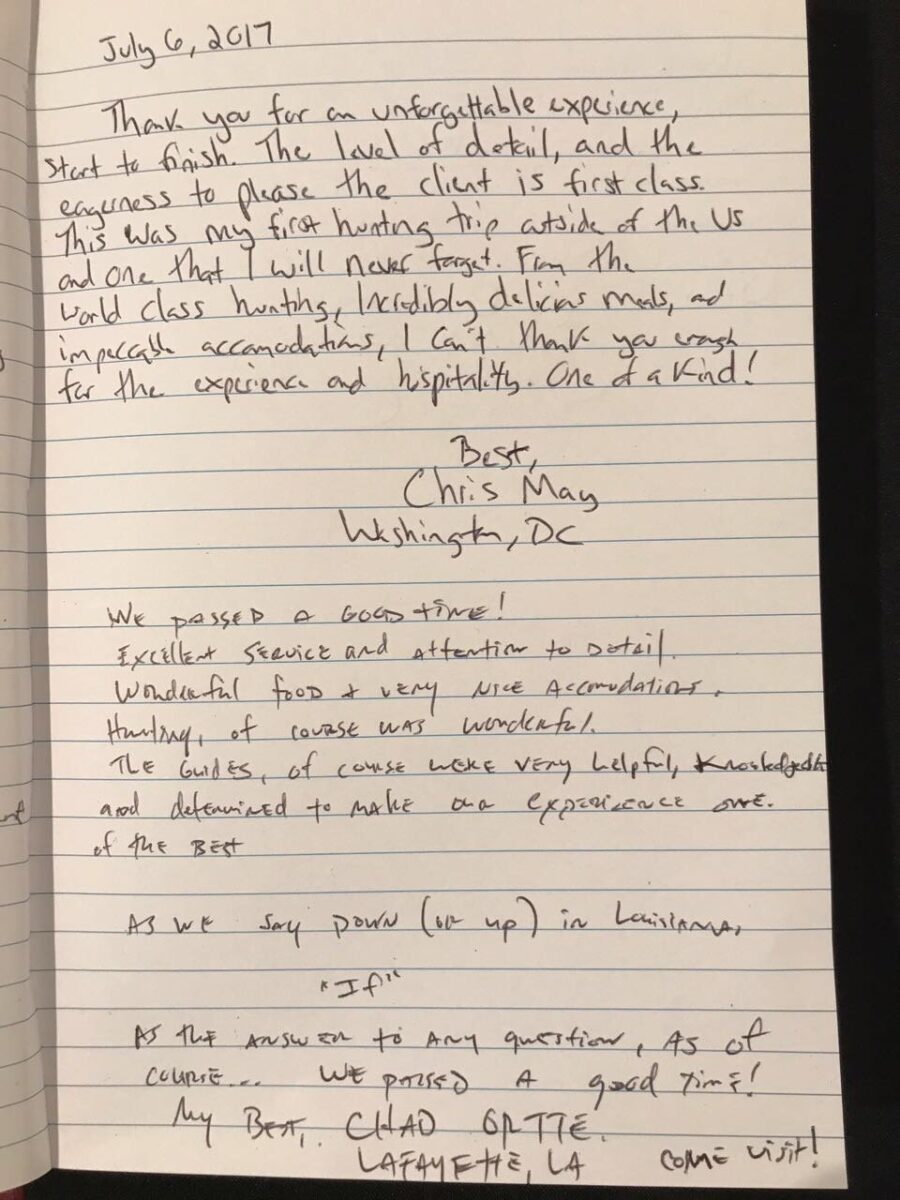 July 6, 2017
Thank you for an unforgettable experience,
start to finish. The level of detail, and the
eagerness to please the client is first class.
This was my first hunting trip outside of the US
and one that I will never forget. From the
world class hunting, Incredibly delicious meals, and
impeccable accomodations, I can't thank you enough
for the experience and hospitality. One of a Kind!
Best,
Chris May
Washington, DC
WE PASSED A GOOD TIME!
Excellent Service and Attention to Detail.
Wonderful food + very nice Accomodations.
Hunting, of course was wonderful.
The Guides, of course were very helpful, Knowledgeable
and determined to make our experience one
of the Best
As we say down (or up) in Louisiana,
"If"
As the answer to any question, As of
course... We passed A good time!
My Best, CHAD
LAFAYETTE, LA come visit!